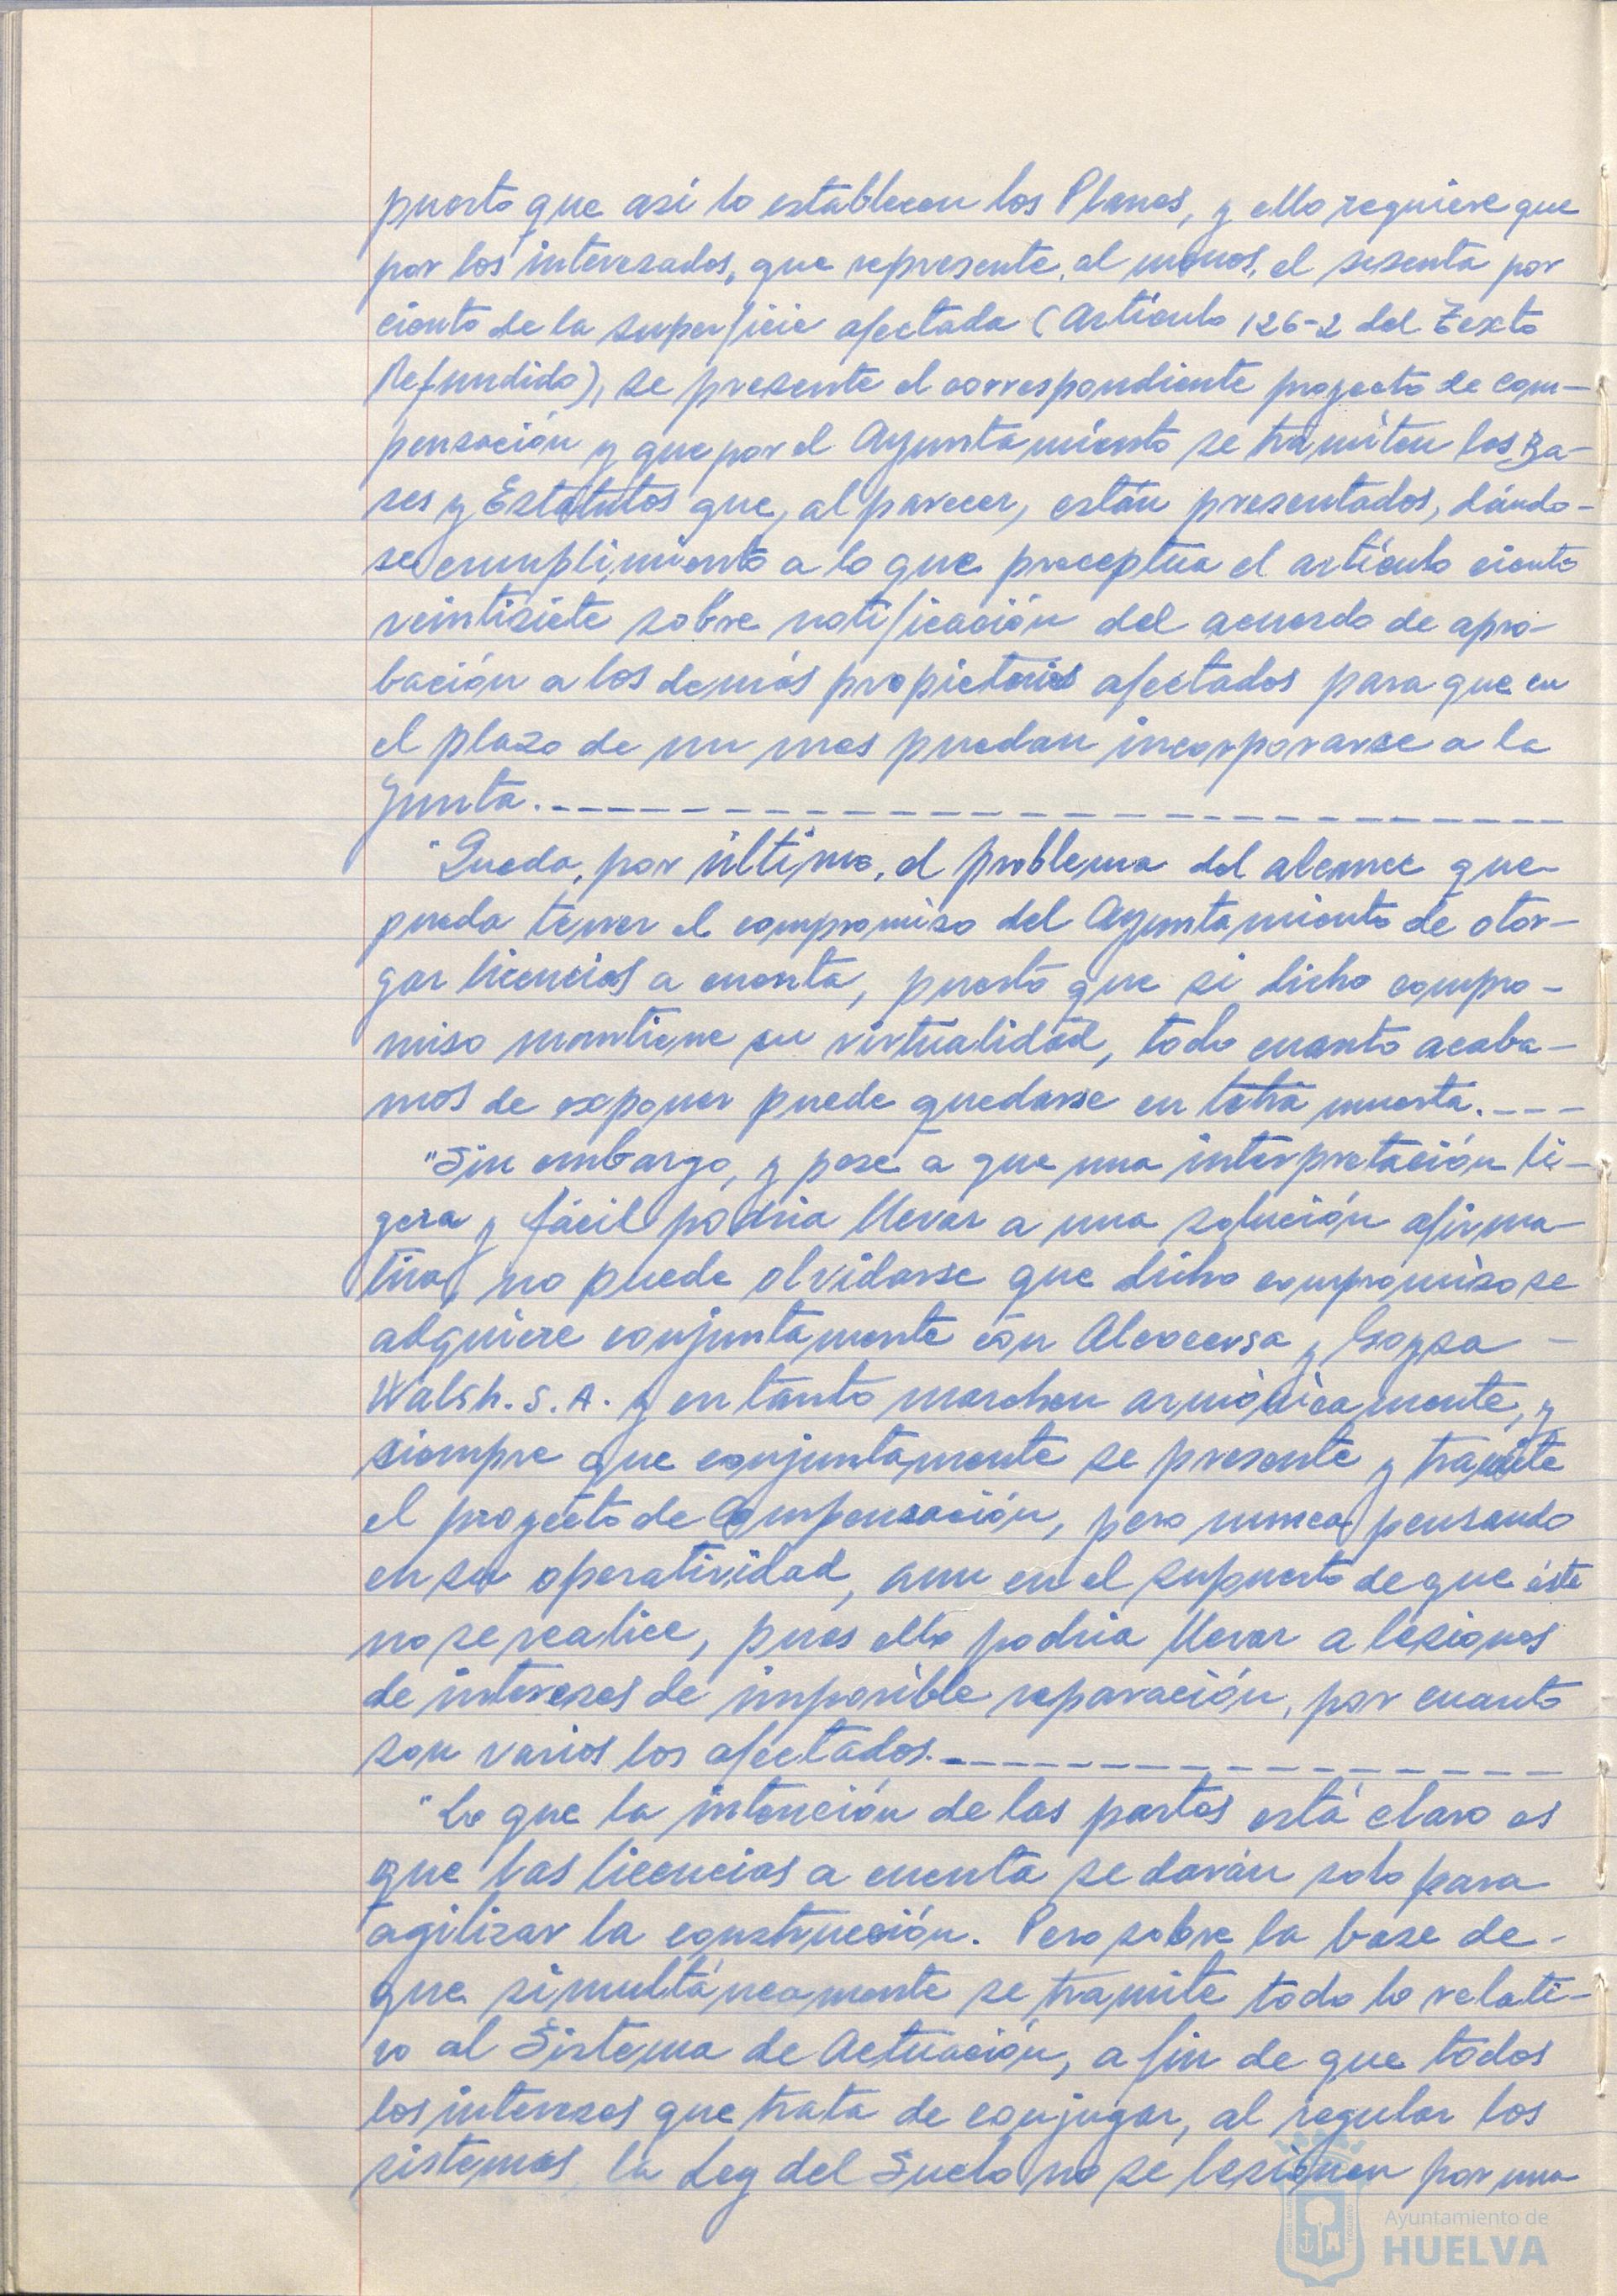 puesto que asi lo establecen los Planes, y ello requiere que
por los interesados, que represente, al menos, el sesenta por
ciento de la superficie afectada (Artículo 126-2 del Texto
Refundido), se presente el correspondiente proyecto de com-
pensación y que por el Ayuntamiento se tramiten las Ba-
ses y Estatutos que, al parecer, están presentados, dándo-
se cumplimiento a lo que preceptua el artículo ciento
veintisiete sobre notificación del acuerdo de apro-
bación a los demás propietarios afectados para que en
el plazo de un mes puedan incorporarse a la
Junta.
"Queda, por último, el problema del alcance que
pueda tener el compromiso del Ayuntamiento de otor-
gar licencias a cuenta, puesto que si dicho compro-
miso mantiene su virtualidad, todo cuanto acaba-
mos de exponer puede quedarse en letra muerta.
"Sin embargo, y pese a que una interpretación li-
gera y fácil podria llevar a una solución afirma-
tiva, no puede olvidarse que dicho compromiso se
adquiere conjuntamente con Alcocersa y Goysa
Walsh. S. A. y en tanto marchen armónicamente, y
siempre que conjuntamente se presente y tramite
el proyecto de Compensación, pero nunca pensando
en su operatividad, aun en el supuesto de que éste
no se realice, pues ello podria llevar a lesiones
de intereses de imposible reparación, por cuanto
son varios los afectados.
"Lo que la intención de las partes está claro es
que las licencias a cuenta se darán solo para
agilizar la construcción. Pero sobre la base de
que simultáneamente se tramite todo lo relati-
vo al Sistema de Actuación, a fin de que todos
los intereses que trata de conjugar, al regular los
sistemas, la Ley del Suelo no se lesionen por una
Ayuntamiento de
HUELVA